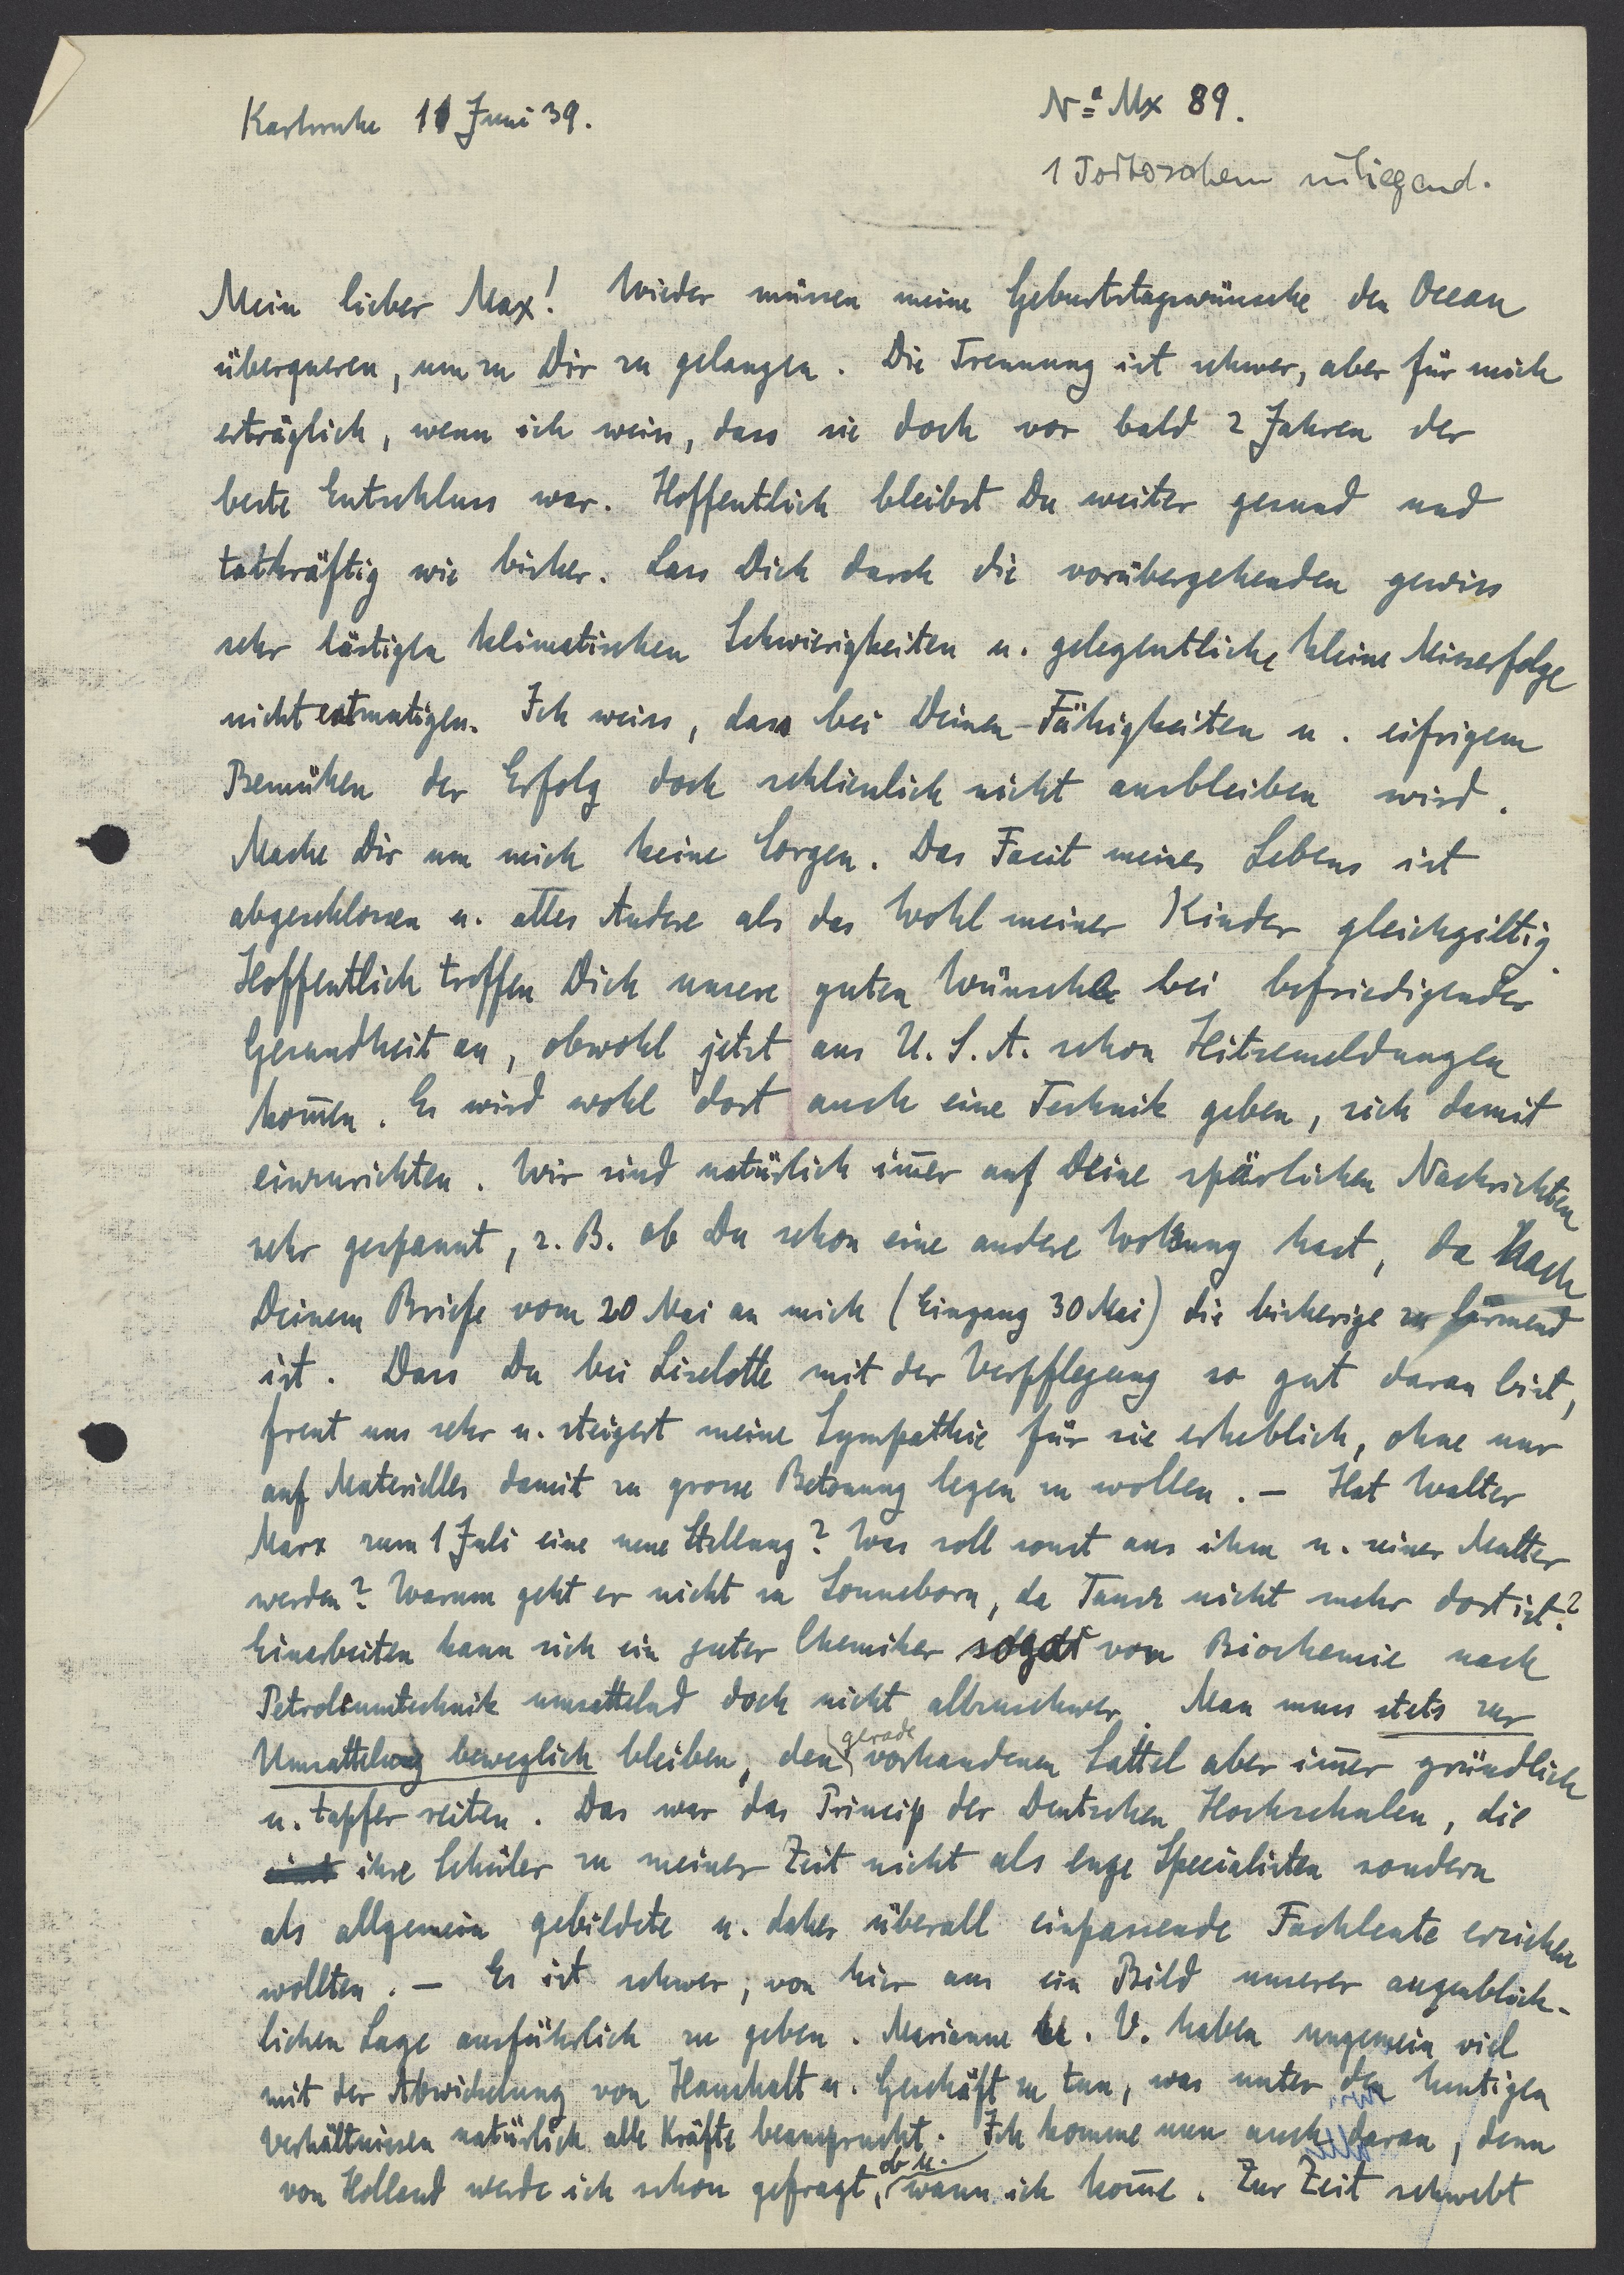 Karlsruhe 11 Juni 39.
Nº Mx 89.
1 
Mein lieber Max! Wieder müssen meine Geburtstagswünsche den Ocean
überqueren, um zu Dir zu gelangen. Die Trennung ist schwer, aber für mich
erträglich, wenn ich weiss, dass sie doch vor bald 2 Jahren der
beste Entschluss war. Hoffentlich bleibst Du weiter gesund und
tatkräftig wie bisher. Lass Dich durch die vorübergehenden gewiss
sehr lästigen klimatischen Schwierigkeiten u. gelegentliche kleine Misserfolge
nicht entmutigen. Ich weiss, dass bei Deinen Fähigkeiten u. eifrigem
Bemühen der Erfolg doch schliesslich nicht ausbleiben wird.
Mache Dir um mich keine Sorgen. Das Facit meines Lebens ist
abgeschlossen u. alles Andere als das Wohl meiner Kinder gleichgiltig.
Hoffentlich treffen Dich unsere guten Wünsche bei befriedigender
Gesundheit an, obwohl jetzt aus U.S.A. schon Hitzemeldungen
kom̄en. Es wird wohl dort auch eine Technik geben, sich damit
einzurichten. Wir sind natürlich im̄er auf Deine spärlichen Nachrichten
sehr gespannt, z.B. ob Du schon eine andere Wohnung hast, da nach
Deinem Briefe vom 20 Mai an mich (Eingang 30 Mai) die bisherige zu lärmend
ist. Dass Du bei Liselotte mit der Verpflegung so gut daran bist,
freut uns sehr u. steigert meine Sympathie für sie erheblich, ohne nur
auf Materielles damit zu grosse Betonung legen zu wollen. – Hat Walter
Marx zum 1 Juli eine neue Stellung? Was soll sonst aus ihm u. seiner Mutter
werden? Warum geht er nicht zu Sonneborn, da nicht mehr dort ist?
Einarbeiten kann sich ein guter Chemiker sogar von Biochemie nach
Petroleumtechnik umsattelnd doch nicht allzuschwer. Man muss stets zur
Umsattelung beweglich bleiben, den gerade vorhandenen Sattel aber im̄er gründlich
u. tapfer reiten. Das war das Princip der Deutschen Hochschulen, die
ihre Schüler zu meiner Zeit nicht als enge Specialisten sondern
als allgemein gebildete u. daher überall einpassende Fachleute erziehen
wollten. – Es ist schwer, von hier aus ein Bild unserer augenblick-
lichen Lage ausführlich zu geben. Marianne u. V. haben ungemein viel
mit der Abwickelung von Haushalt u. Geschäft zu tun, was unter den heutigen
Verhältnissen natürlich alle Kräfte beansprucht. Ich komme nun auch daran, denn
von Holland werde ich schon gefragt, ob u. wann ich kom̄e. Zur Zeit schwebt